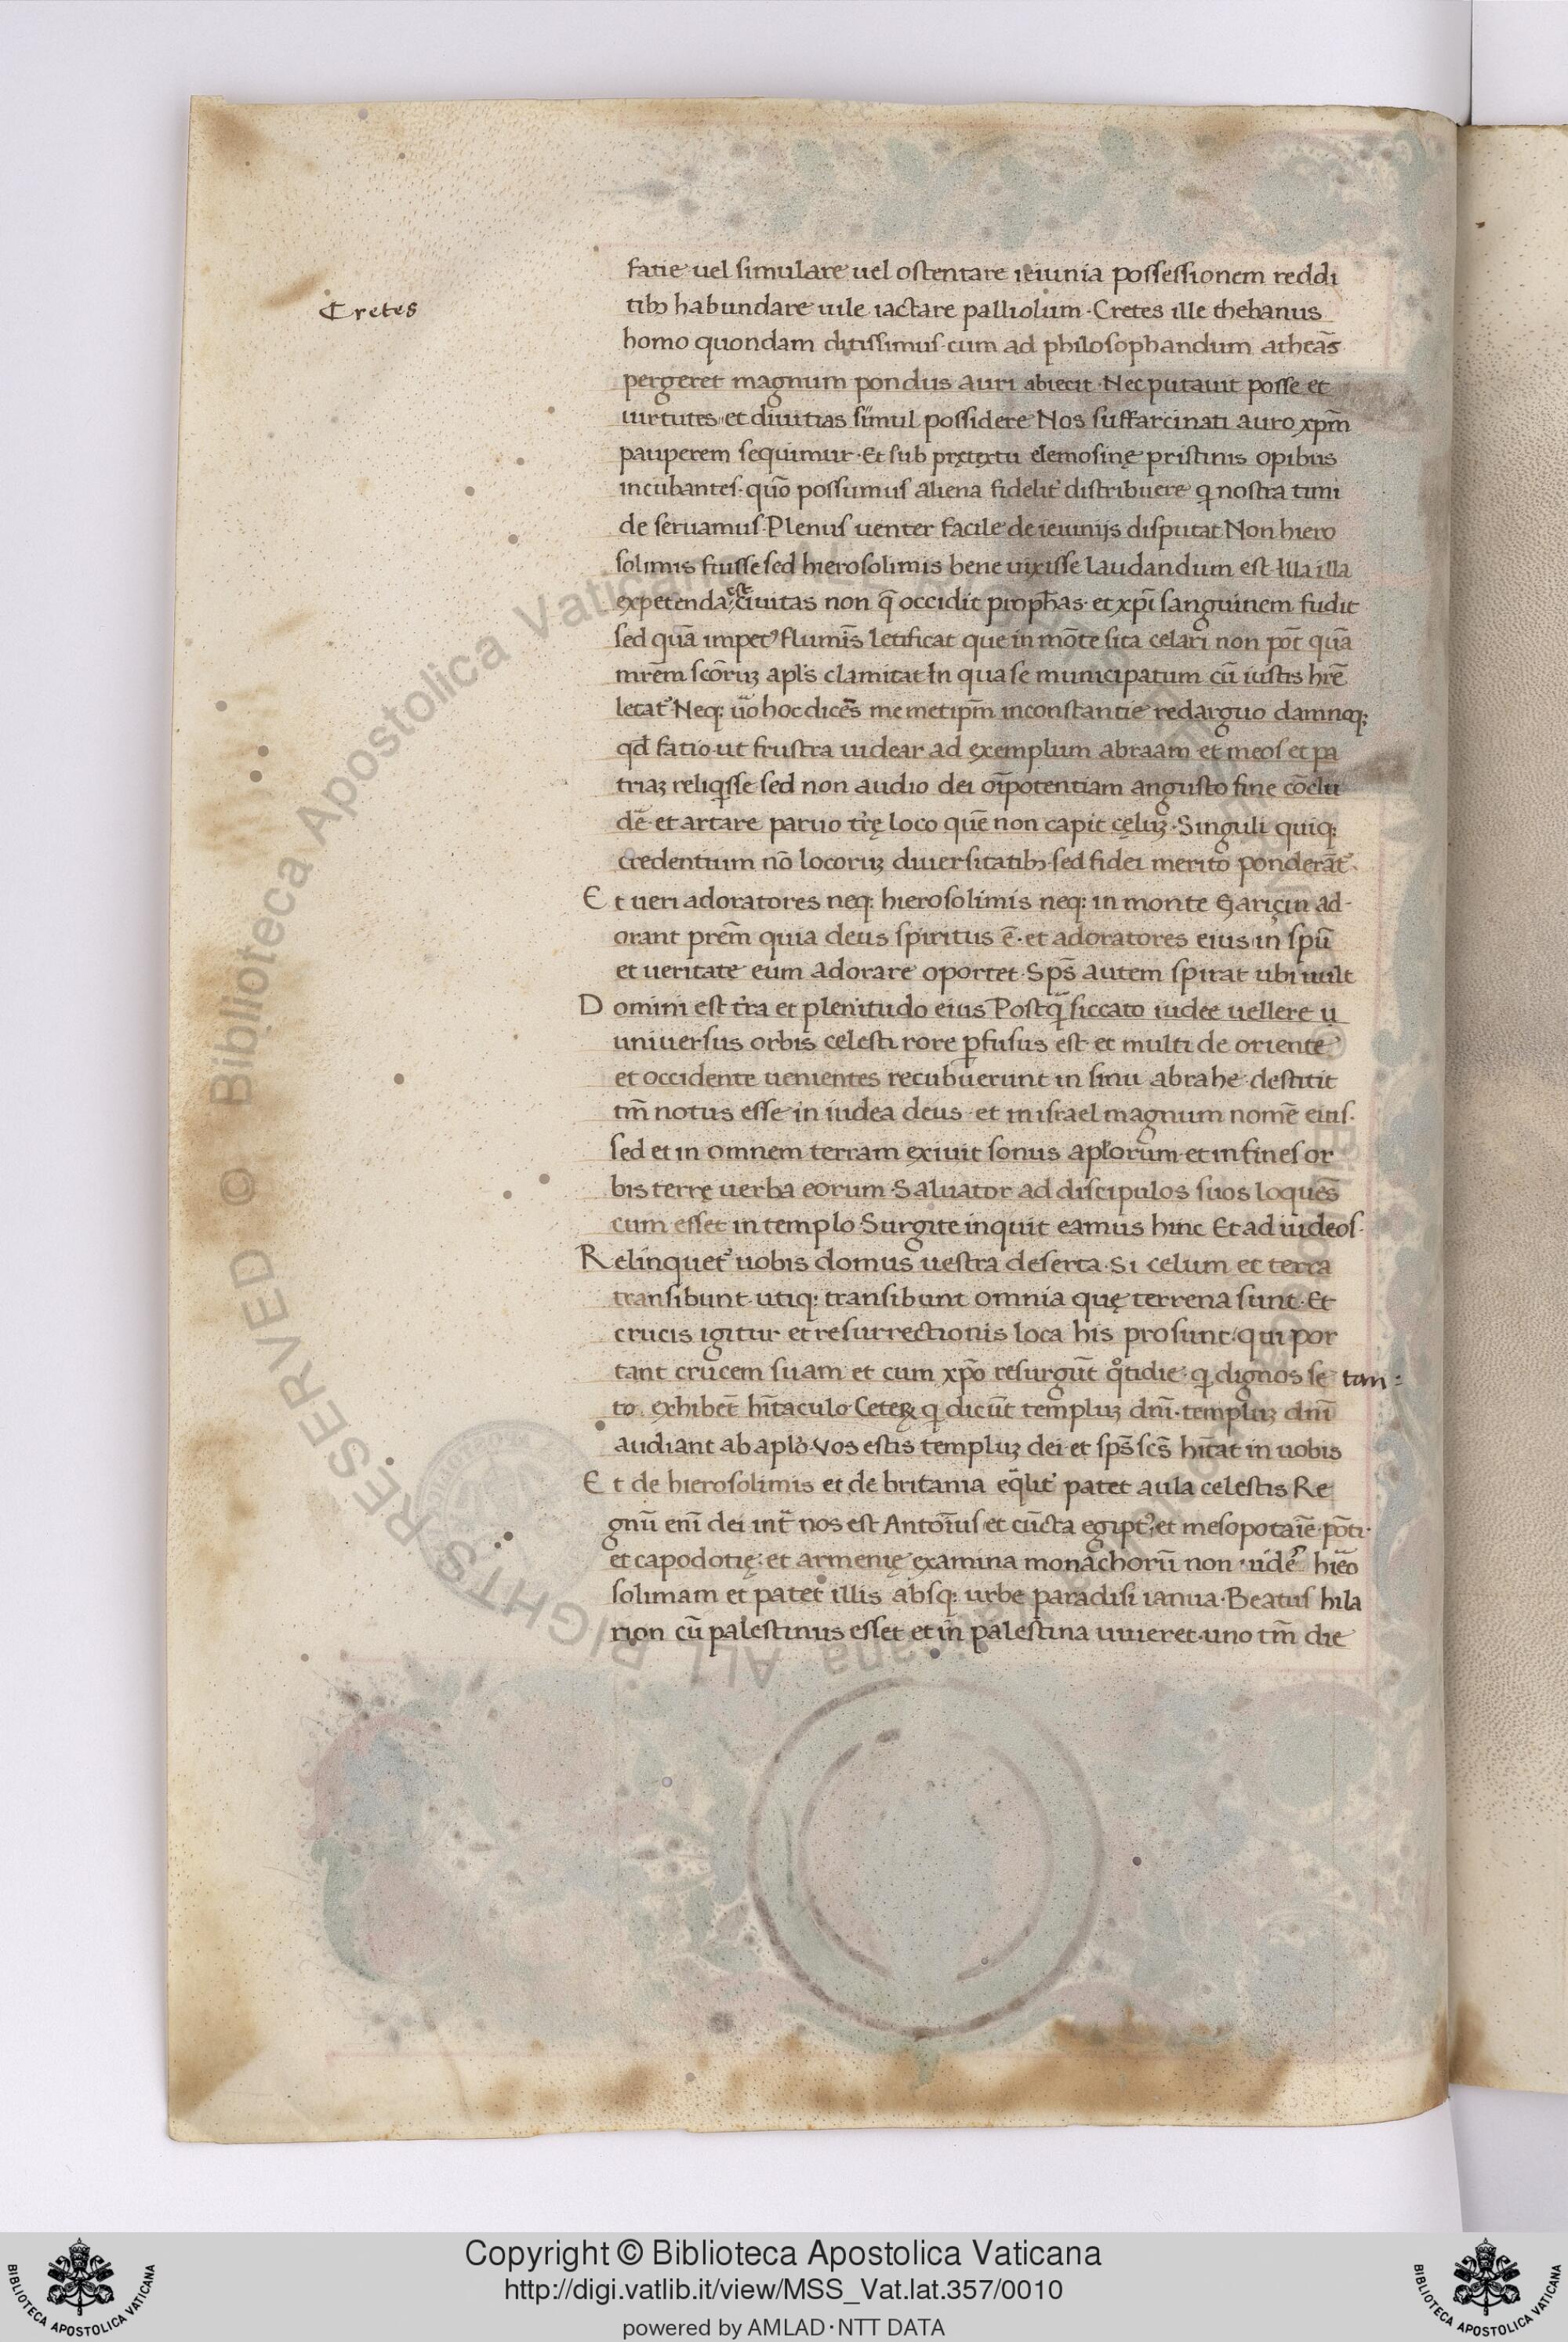 Cretes
fatie uel simulare uel ostentare ieiunia possessionem reddi
tibꝫ habundare uile iactare palliolum · Cretes ille thebanus
homo quondam ditissimus cum ad philosophandum atheās
pergeret magnum pondus auri abiecit · Nec putauit posse et
uirtutes et diuitias simul possidere Nos suffarcinati auro xp̄m
pauperem sequimur · Et sub pretextu elemosinę pristinis opibus
incubantes · quō possumus aliena fidelit᾽ distribuere q nostra timi
de seruamus · Plenus uenter facile de ieiunijs disputat Non hiero
solimis fuisse sed hierosolimis bene uixisse laudandum est · Illa illa
expetenda est ciuitas non q̄ occidit proph̄as · et xp̄i sanguinem fudit
sed quā impet᾽ flumīs letificat que in mōte sita celari non pōt quā
mr̄em scōruꝫ apl̄s clamitat In qua se municipatum cū iustis hr̄e
letat᾽ Neq: ūo hoc dicēs me metip̄m inconstantie redarguo damnoq;
qd̄ fatio ut frustra uidear ad exemplum abraam et meos et pa
triaꝫ reliqisse sed non audio dei oīpotentiam angusto fine cōclu
dē · et artare paruo tr̄ę loco quē non capit cęluꝫ · Singuli quiq:
credentium nō locoruꝫ diuersitatibꝫ sed fidei merito ponderāt᾽ ·
Et ueri adoratores neq: hierosolimis neq: in monte Gariçin ad-
orant prēm quia deus spiritus ē · et adoratores eius in spū
et ueritate eum adorare oportet · Sps̄ autem spirat ubi uult
Domini est tr̄a et plenitudo eius Postq̄ siccato iudee uellere u
uniuersus orbis celesti rore ꝑfusus est et multi de oriente
et occidente uenientes recubuerunt in sinu abrahe · destitit
tm̄ notus esse in iudea deus · et in israel magnum nomē eius ·
sed et in omnem terram exiuit sonus apl̄orum · et in fines or
bis terrę uerba eorum · Saluator ad discipulos suos loquēs
cum esset in templo · Surgite inquit eamus hinc Et ad iudeos ·
Relinquet᾽ uobis domus uestra deserta · Si celum et terra
transibunt · utiq: transibunt omnia quę terrena sunt · Et
crucis igitur et resurrectionis loca his prosunt / qui por
tant crucem suam et cum xp̄o resurgūt qͦtidie · q dignos se tan=
to exhibēt hītaculo · Ceteꝝ q dicūt templuꝫ dn̄i · templuꝫ dn̄i
audiant ab aplō · Vos estis templuꝫ dei · et sps̄ scs̄ hītat in uobis
Et de hierosolimis et de britania eq̄lit᾽ patet aula celestis Re
gnū enī dei int̄ nos est Antoīus et cūcta egipt᾽ · et mesopotaīe · pōti ·
et capodotię · et armenię examina monachorū non · uidē hiēo
solimam et patet illis absq: urbe paradisi ianua · Beatus hila
rion cū palestinus esset et in palestina uiueret · uno tm̄ die
Copyright © Biblioteca Apostolica Vaticana
http://digi.vatlib.it/view/MSS_Vat.lat.357/0010
powered by AMLAD·NTT DATA
BIBLIOTECA APOSTOLICA VATICANA
BIBLIOTECA APOSTOLICA VATICANA